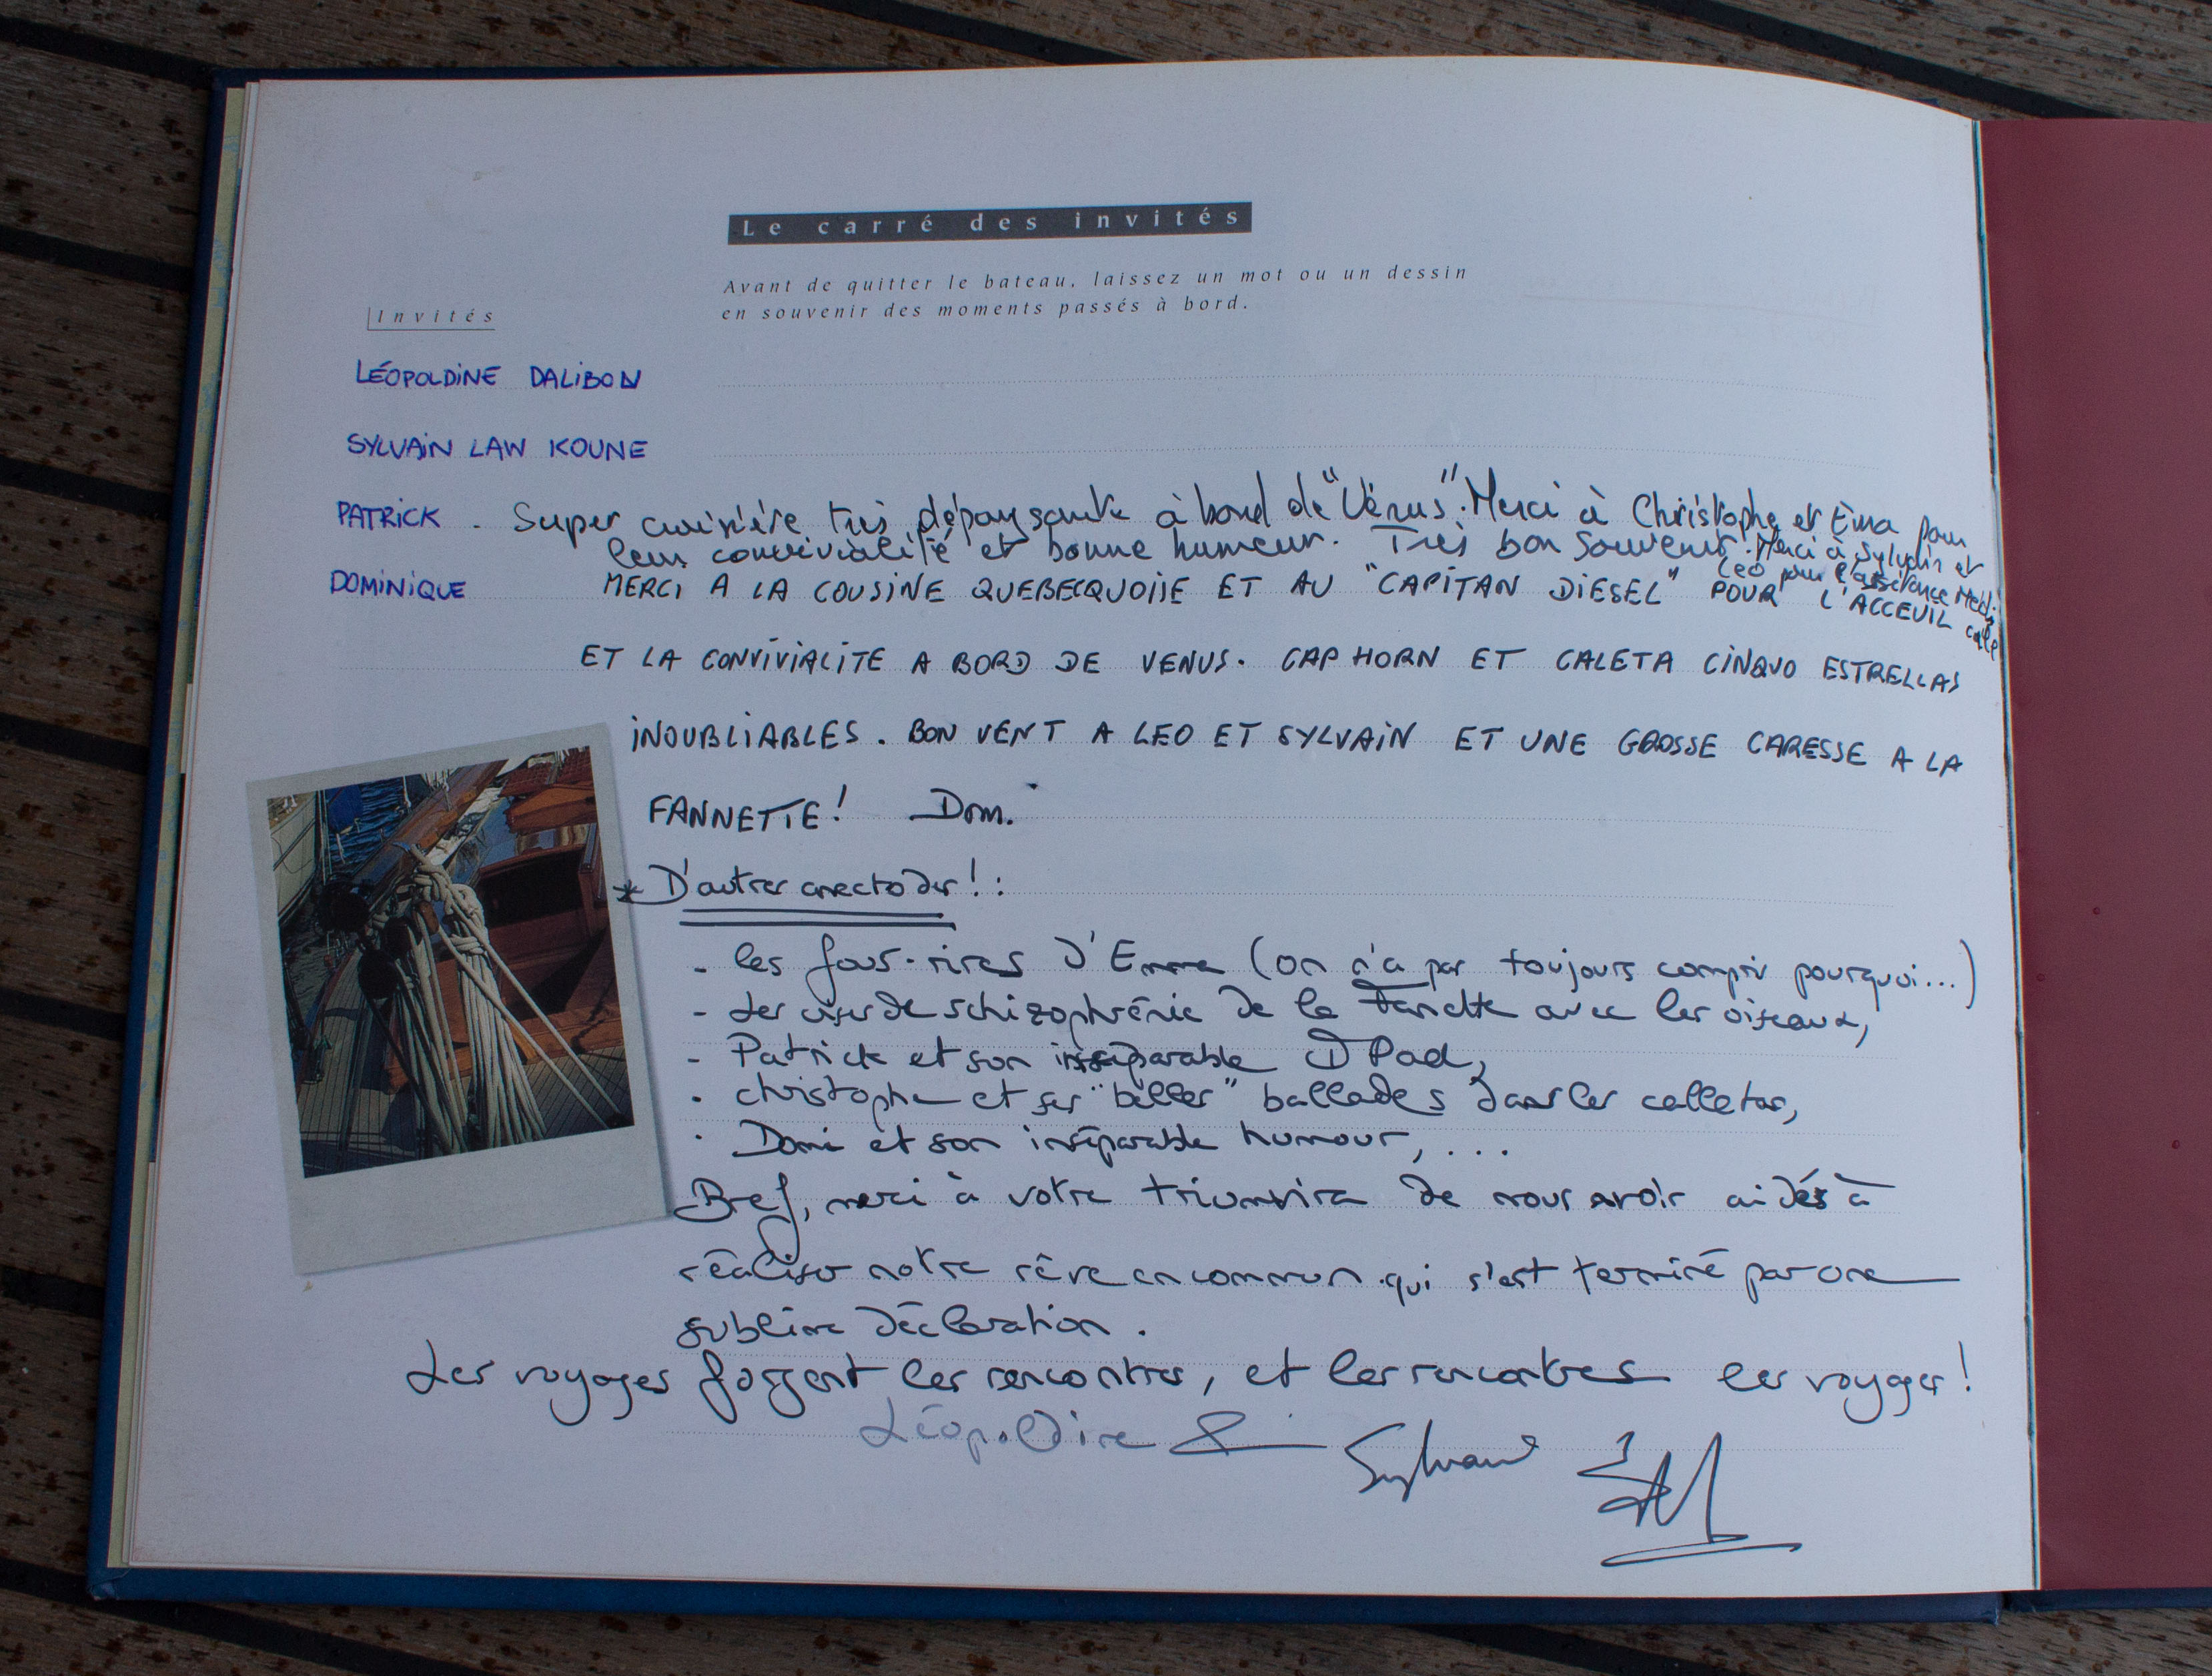 Le carré des invités
Avant de quitter le bateau, laissez un mot ou un dessin
en souvenir des moments passés à bord.
Invités
LÉOPOLDINE DALIBON
SYLVAIN LAW KOUNE
PATRICK - Super croisière très dépaysante à bord de "Vénus". Merci à Christophe et Ema pour
leur convivialité et bonne humeur. Très bon souvenir. Merci à Sylvain et
Leo pour l'assistance Médicale
DOMINIQUE MERCI A LA COUSINE QUEBECQUOISE ET AU "CAPITAN DIESEL" POUR L'ACCEUIL
ET LA CONVIVIALITE A BORD DE VENUS. CAP HORN ET CALETA CINQUO ESTRELLAS
INOUBLIABLES. BON VENT A LEO ET SYLVAIN ET UNE GROSSE CARESSE A LA
FANNETTE! Dom.
* D'autres anectodes! :
- les fous-rires d'Emma (on n'a pas toujours compris pourquoi...)
- Les crises de schizophrénie de la Fanette avec les oiseaux,
- Patrick et son inséparable IPad,
- christophe et ses "belles" ballades dans les calletas,
- Domi et son inséparable humour, ...
Bref, merci à votre triumvira de nous avoir aidés à
réaliser notre rêve en commun qui s'est terminé par une
sublime déclaration.
Les voyages forgent les rencontres, et les rencontres les voyages!
Léopoldine & Sylvain